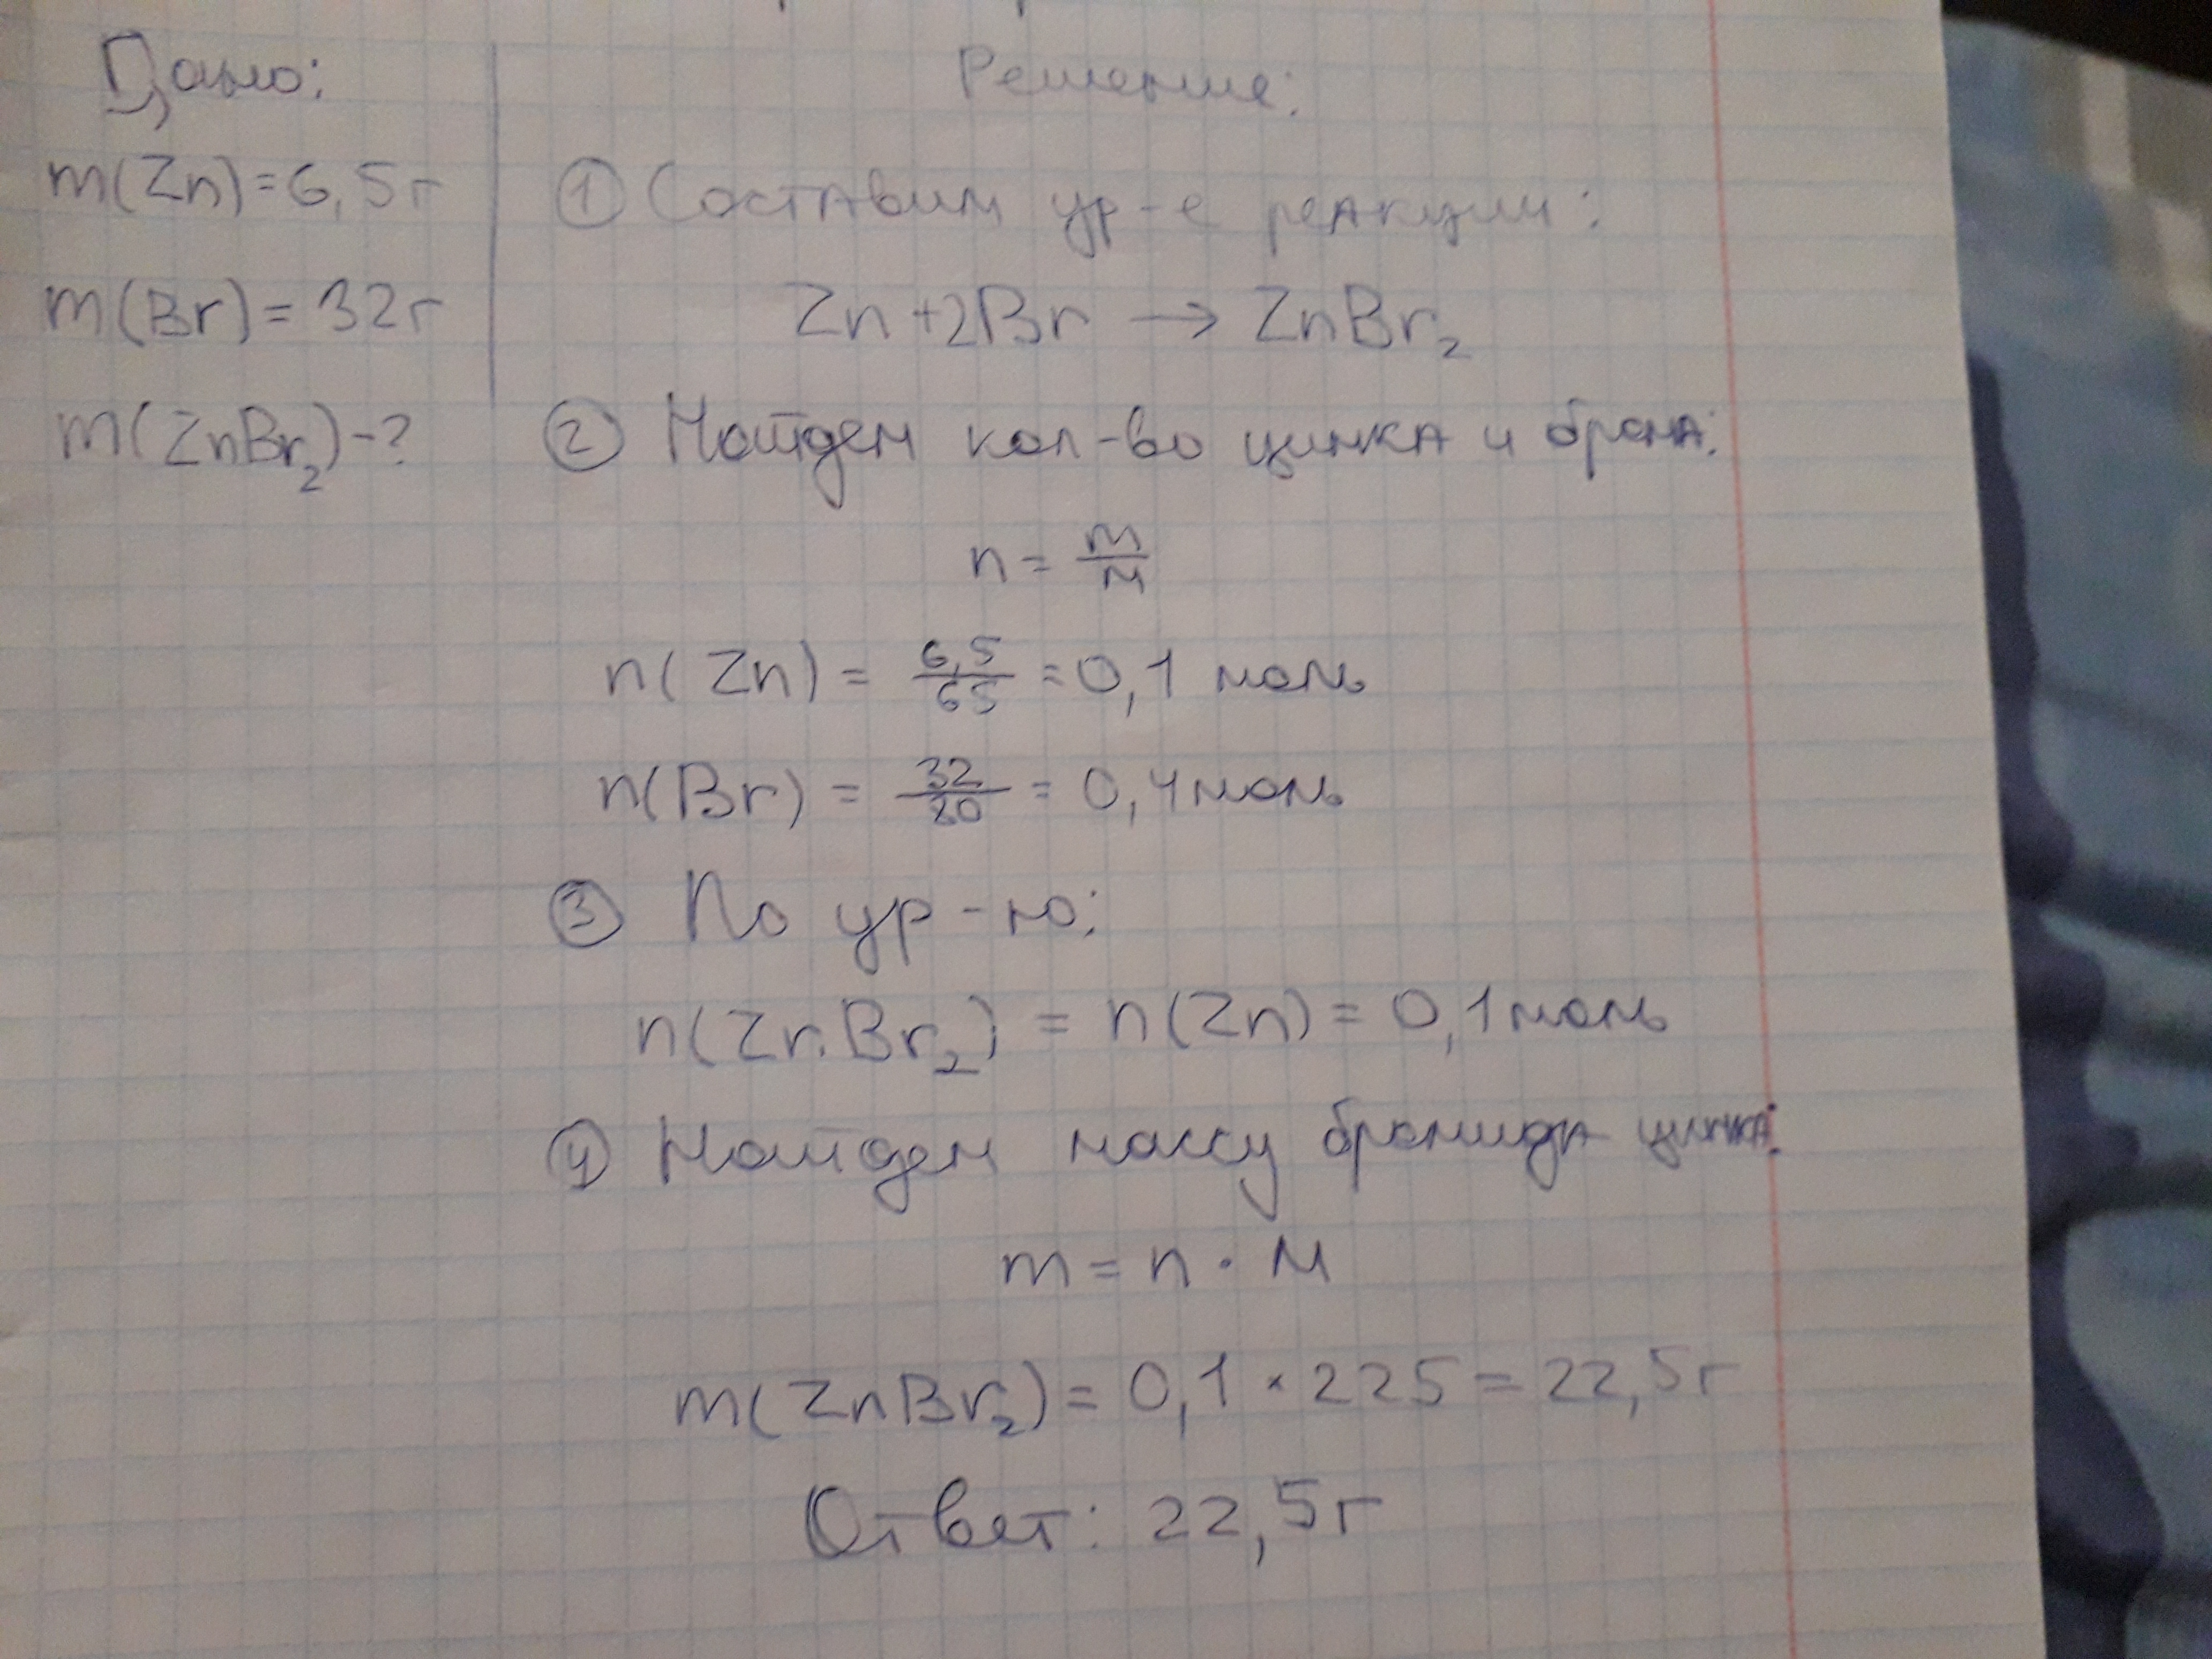 Дано:
m(Zn)=6,5г
m(Br)=32г
m(ZnBr₂)-?
Решение:
① Составим ур-е реакции:
Zn+2Br → ZnBr₂
② Найдем кол-во цинка и брома:
n = m/M
n(Zn) = 6,5/65 = 0,1 моль
n(Br) = 32/80 = 0,4 моль
③ По ур-ю:
n(ZnBr₂) = n(Zn) = 0,1 моль
④ Найдем массу бромида цинка:
m = n · M
m(ZnBr₂) = 0,1 × 225 = 22,5г
Ответ: 22,5г